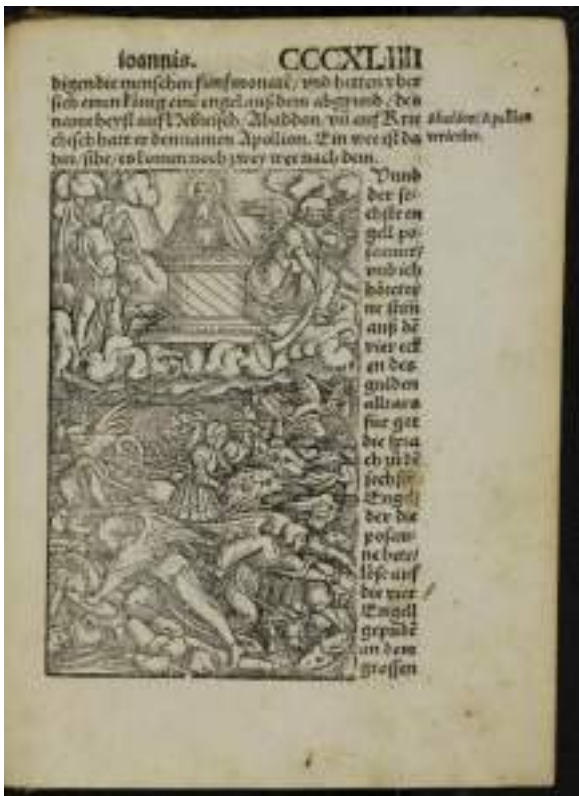 ioannis. CCCXLIIII
digen die menschen fünf monatē/ vnd hetten vber
sich einen künig einē engel auß dem abgrund/ des
name heyst auf Hebreisch, Abaddon, vñ auf Krie
chisch hatt er den namen Apollion. Ein wee ist da
hin, sihe/ es komen noch zwey wee nach dem.
Abaddon/Apollion
verderber.
Vnnd
der se-
chste en
gell po-
saunet/
vnd ich
höret ey
ne stim
auß dē
vier eck
en des
gulden
alltars
für got
die spra
ch zů dē
sechstē
Engel
der die
posau-
ne hete/
löse auf
die vier
Engell
gepūdē
an dem
grossen